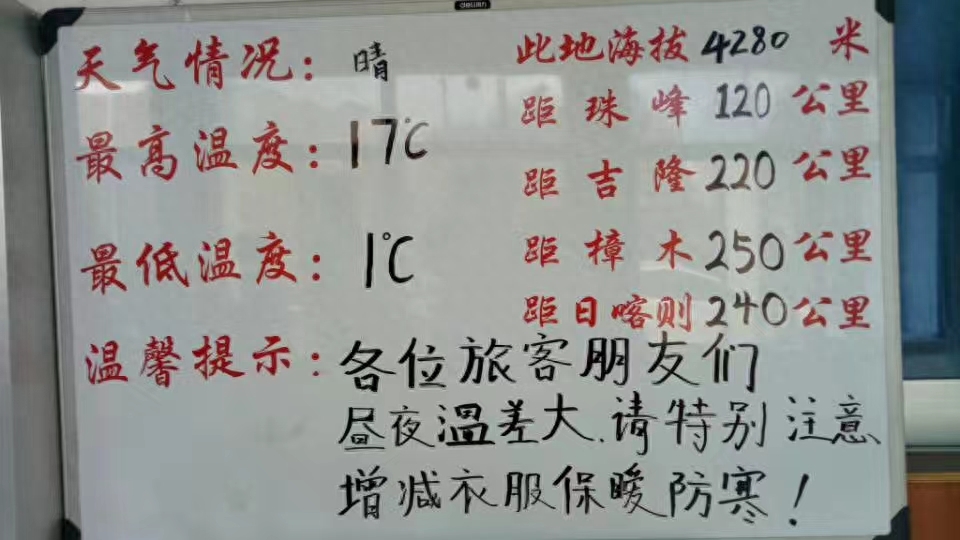 deli
天气情况：晴
最高温度：17℃
最低温度：1℃
此地海拔4280米
距珠峰120公里
距吉隆220公里
距樟木250公里
距日喀则240公里
温馨提示：各位旅客朋友们
昼夜温差大.请特别注意
增减衣服保暖防寒！